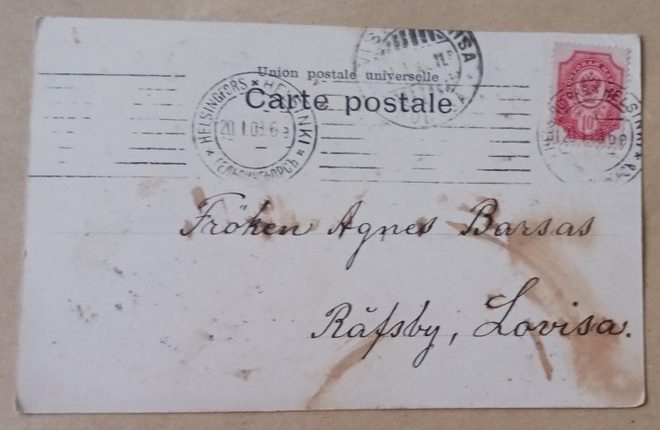 Union postale universelle
Carte postale
HELSINGFORS * HELSINKI
20.I.03. 6 e
ГЕЛЬСИНГФОРСЪ
10
Fröken Agnes Barsas
Räfsby, Lovisa.